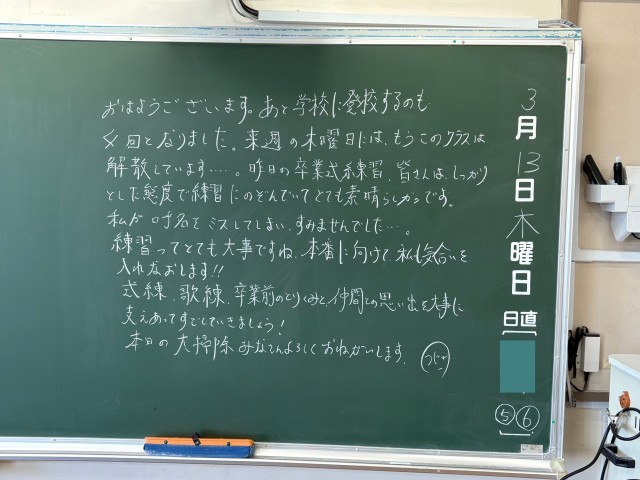 おはようございます。あと学校に登校するのも
4回となりました。来週の木曜日には、もうこのクラスは
解散しています……。昨日の卒業式練習、皆さんは、しっかり
とした態度で練習にのぞんでいてとても素晴らしかったです。
私が呼名をミスしてしまい、すみませんでした…。
練習ってとても大事ですね。本番に向けて、私も気合いを
入れなおします!!
式練、歌練、卒業前のとりくみと、仲間との思い出を大事に
支えあってすごしていきましょう!
本日の大掃除みなさんよろしくおねがいします。
3
月
13
日
木
曜
日
日直
⑤⑥